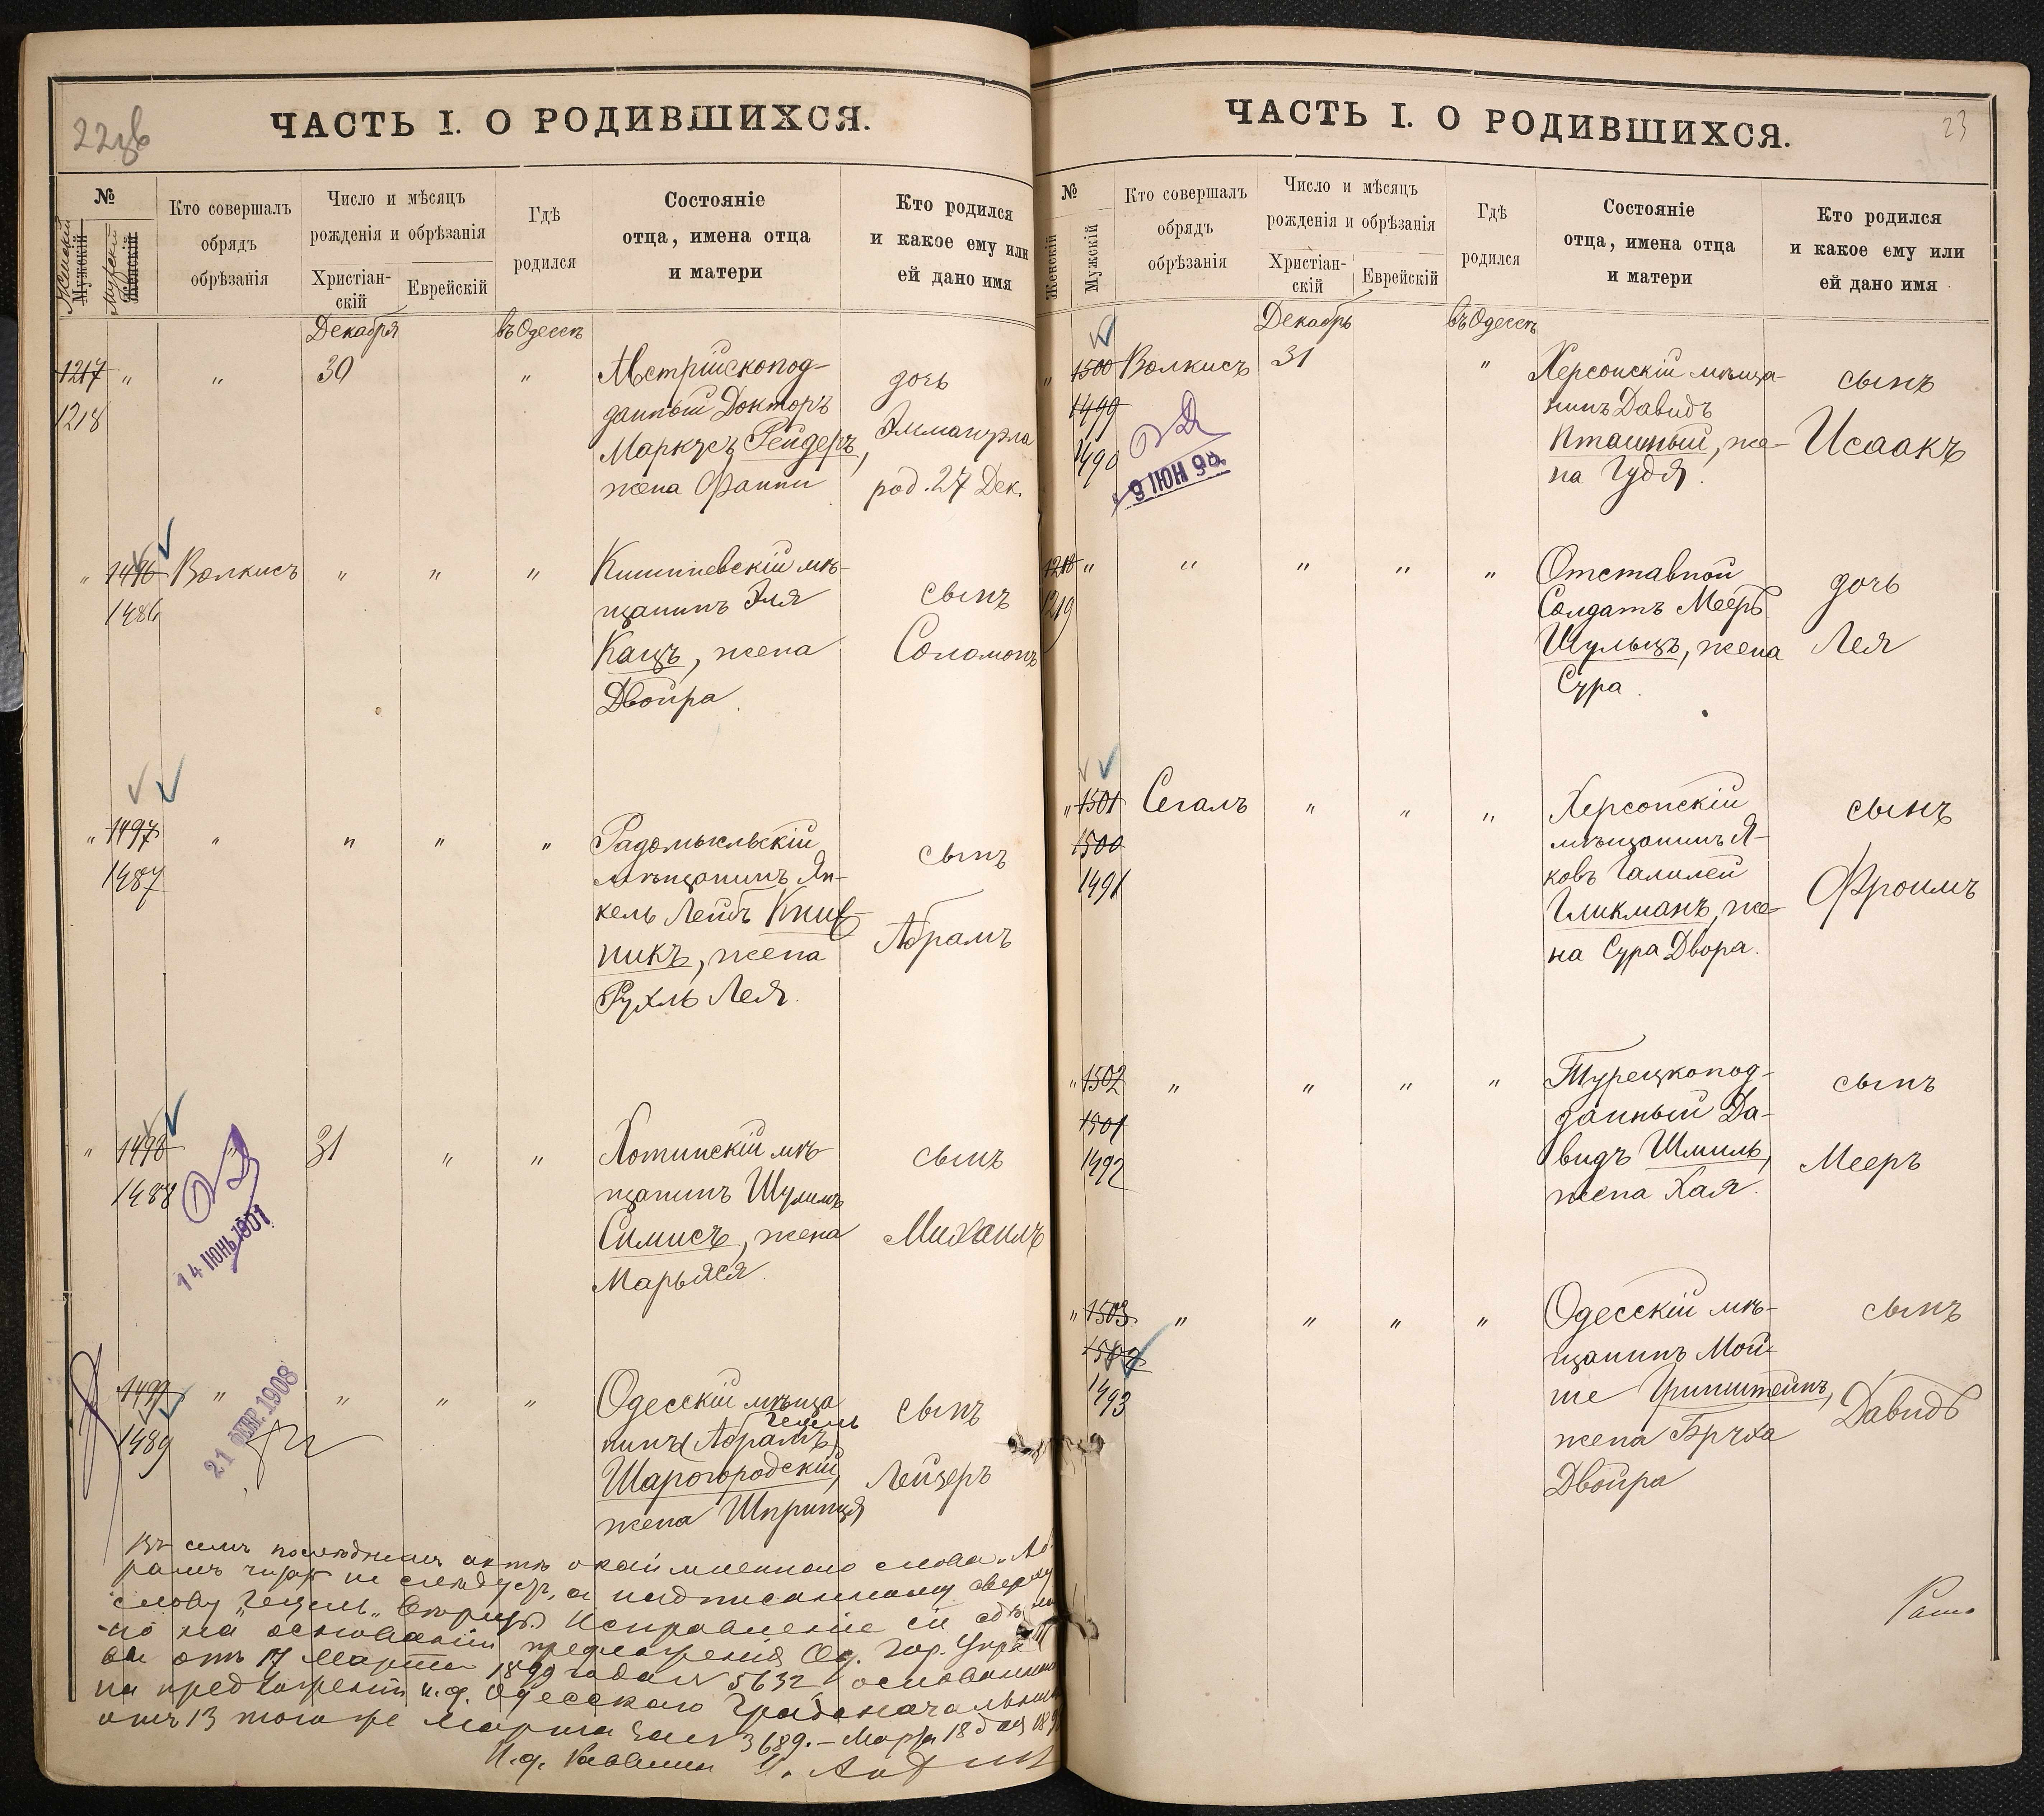 22об
ЧАСТЬ I. О РОДИВШИХСЯ.
№
Женскій
Мужскій
Мужскій
Женскій
Кто совершалъ
обрядъ
обрѣзанія
Число и мѣсяцъ
рожденія и обрѣзанія
Христіан-
скій
Еврейскій
Гдѣ
родился
Состояніе
отца, имена отца
и матери
Кто родился
и какое ему или
ей дано имя
Декабря
въ Одессѣ
1217 " " 30 "
1218
Австрійскопод-
данный Докторъ
Маркусъ Рейдеръ,
жена Фанни
дочь
Эммануэла
род. 27 Дек.
" 1496 Волкисъ " " "
1486
Кишиневскій мѣ-
щанинъ Эля
Кацъ, жена
Двойра.
сынъ
Соломонъ
" 1497 " " " "
1487
Радомысльскій
мѣщанинъ Ян-
кель Лейбъ Книж
никъ, жена
Рухль Лея.
сынъ
Абрамъ
" 1498 " 31 " "
1488
14 ІЮНЬ 1901
Хотинскій мѣ-
щанинъ Шулимъ
Симисъ, жена
Марьяся.
сынъ
Михаилъ
1499 " " " "
1489
21 ФЕВР. 1908
Одесскій мѣща
Гецель
нинъ (Абрамъ)
Шарогородскій,
жена Шпринця
сынъ
Лейзеръ
Въ семъ послѣднемъ актѣ окаймленнаго слова "Аб-
рамъ" читать не слѣдуетъ, а надписанному сверху
слову "Гецель" вѣрить. Исправленіе сіе сдѣла
но на основаніи предложенія Од. Гор. Упра
вы отъ 17 Марта 1899 года за № 5632, основанномъ
на предложеніи и.д. Одесскаго Градоначальника
отъ 13 того же Марта за № 3689. – Марта 18 дня
И.д. Раввина
23
ЧАСТЬ I. О РОДИВШИХСЯ.
№
Женскій
Мужскій
Кто совершалъ
обрядъ
обрѣзанія
Число и мѣсяцъ
рожденія и обрѣзанія
Христіан-
скій
Еврейскій
Гдѣ
родился
Состояніе
отца, имена отца
и матери
Кто родился
и какое ему или
ей дано имя
Декабрь
въ Одессѣ
" 1500 Волкисъ 31 "
1499
1490
9 ІЮН
Херсонскій мѣща-
нинъ Давидъ
Пташный, же-
на Гудя.
сынъ
Исаакъ
1218 " " " " "
1219
Отставной
Солдатъ Мееръ
Шульцъ, жена
Сура.
дочь
Лея
" 1501 Сегалъ " " "
1500
1491
Херсонскій
мѣщанинъ Я-
ковъ Галилей
Гликманъ, же-
на Сура Двора.
сынъ
Фроимъ
" 1502 " " " "
1501
1492
Турецкопод-
данный Да-
видъ Шмиль,
жена Хая.
сынъ
Мееръ
" 1503 " " " "
1502
1493
Одесскій мѣ-
щанинъ Мой-
ше Гринштейнъ,
жена Бруха
Двойра
сынъ
Давидъ